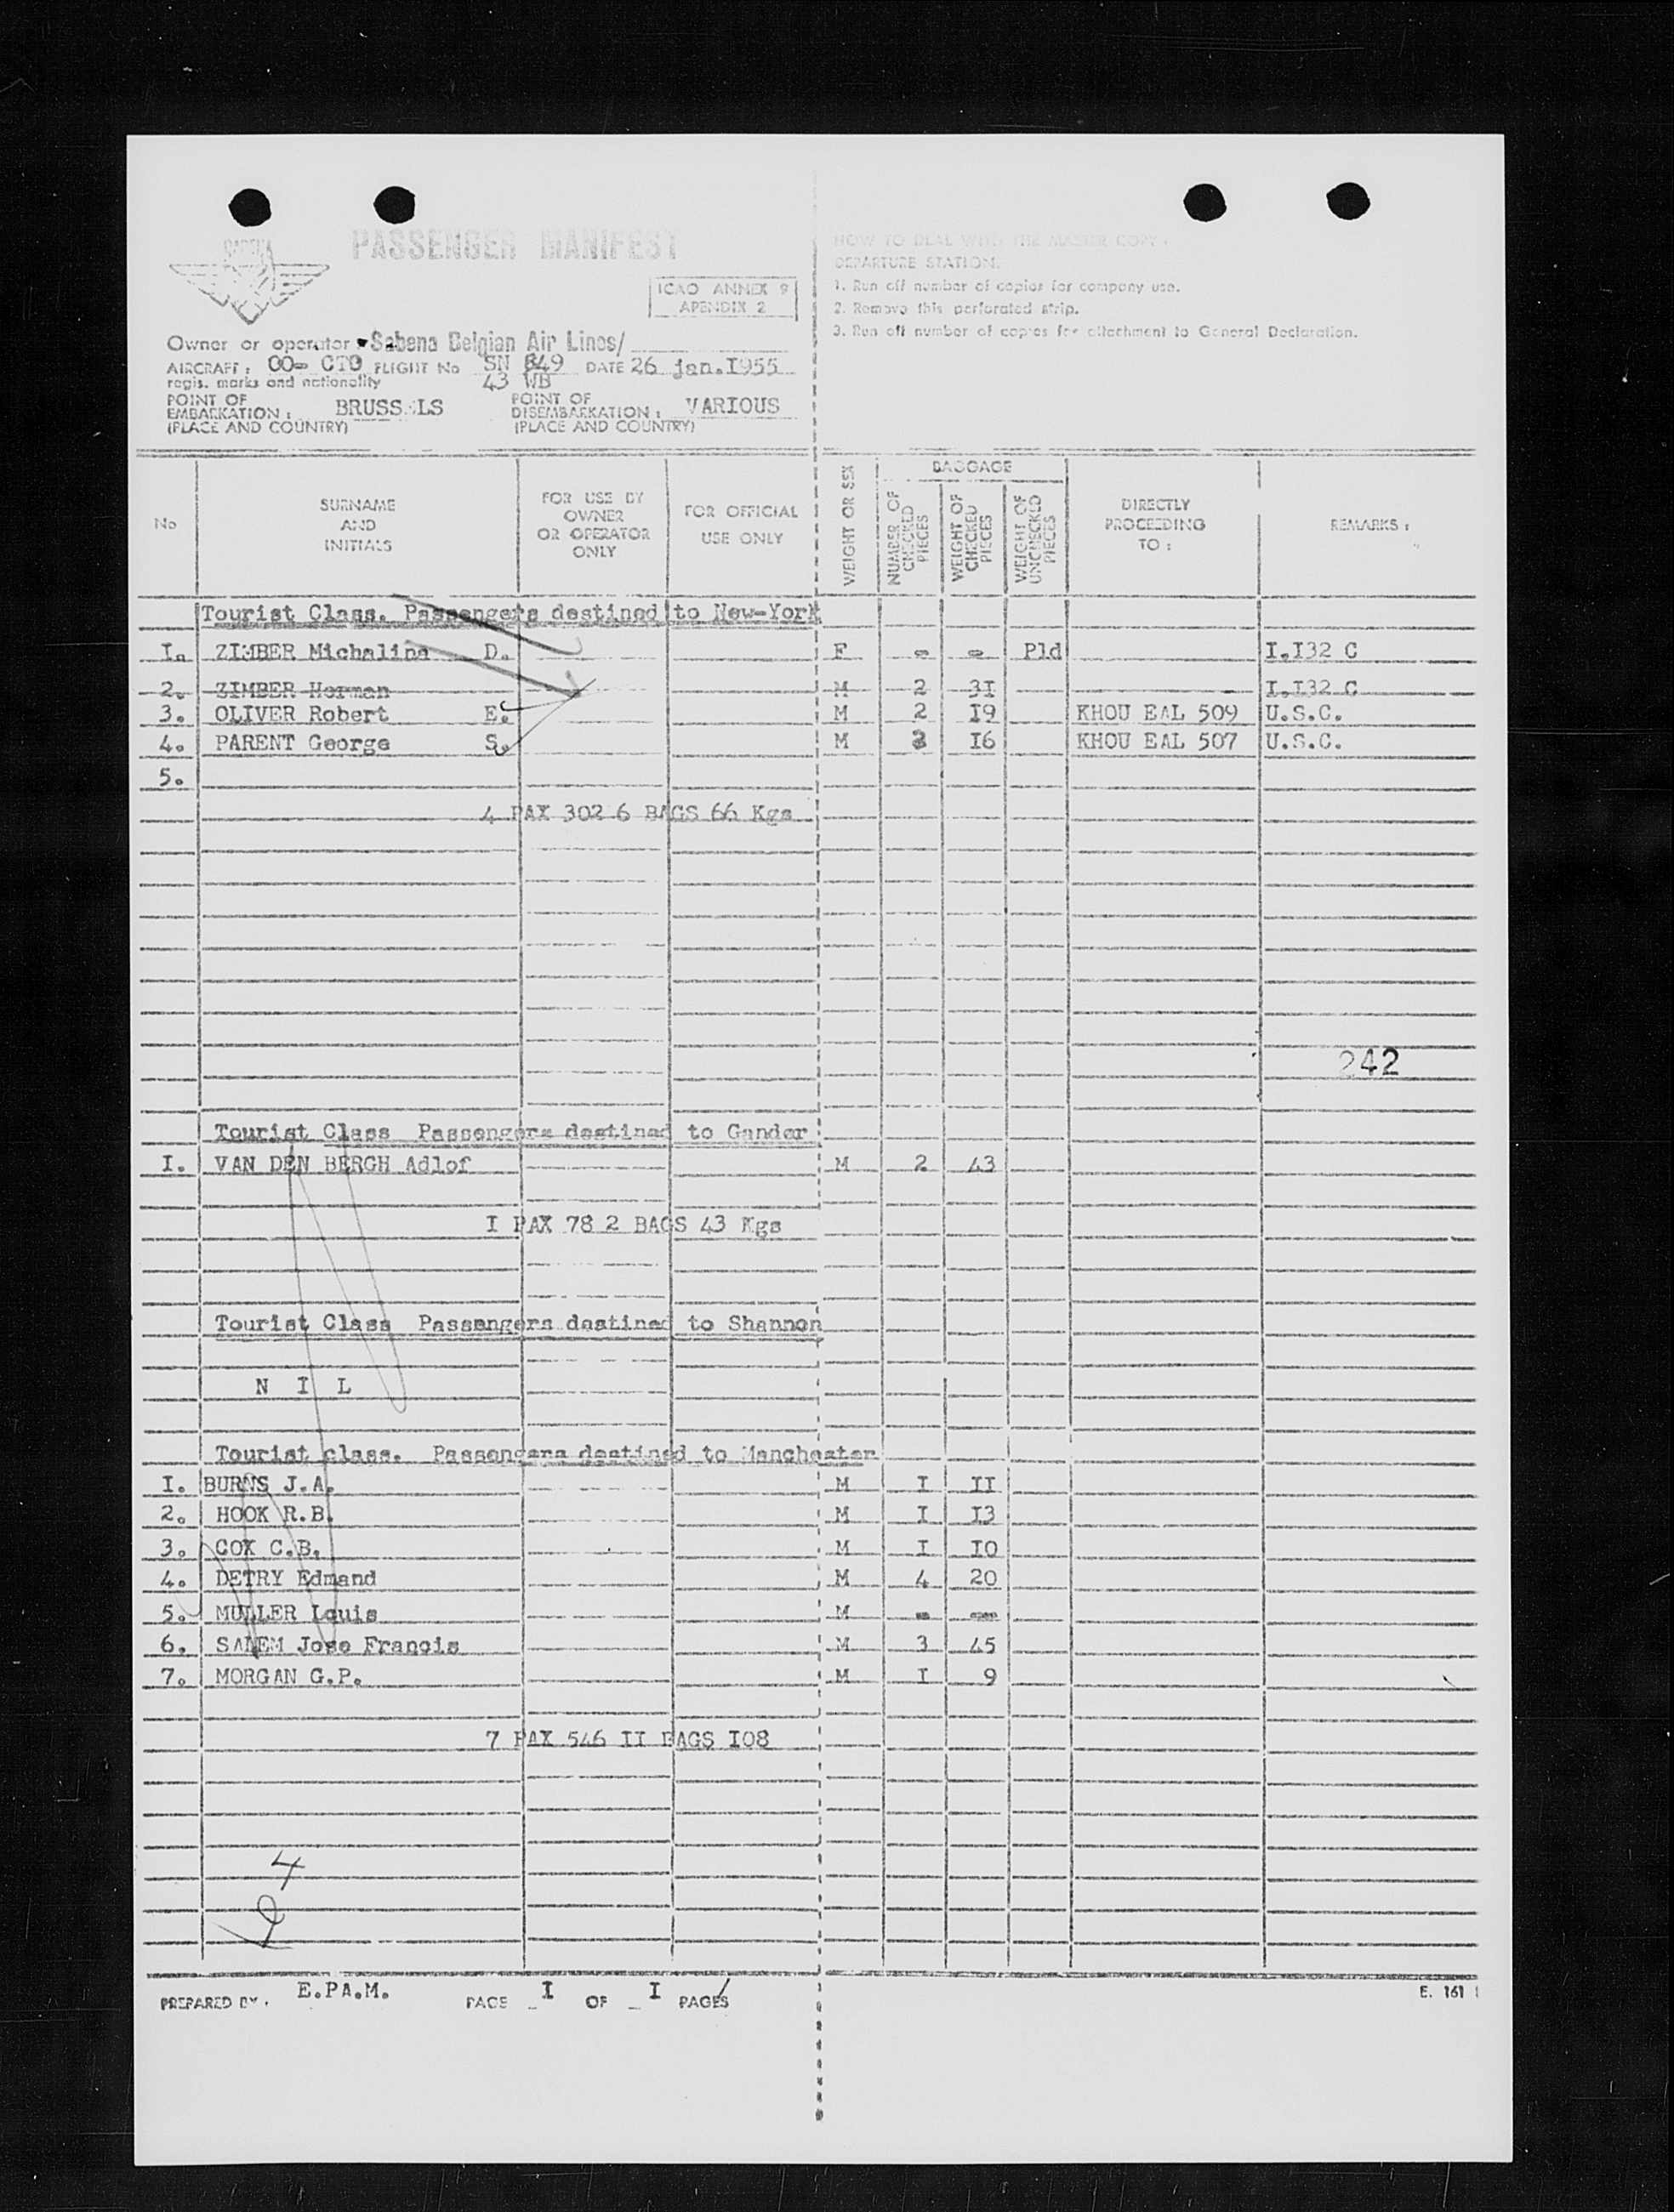 SABENA
PASSENGER MANIFEST
ICAO ANNEX 9
APENDIX 2
Owner or operator Sabena Belgian Air Lines/
AIRCRAFT: OO- CTO FLIGHT No SN 549 DATE 26 jan.I955
regis. marks and nationality 43 WB
POINT OF EMBARKATION: BRUSS LS POINT OF DISEMBARKATION: VARIOUS
(PLACE AND COUNTRY) (PLACE AND COUNTRY)
HOW TO DEAL WITH THE MASTER COPY.
DEPARTURE STATION.
1. Run off number of copies for company use.
2. Remove this perforated strip.
3. Run off number of copies for attachment to General Declaration.
No
SURNAME AND INITIALS
FOR USE BY OWNER OR OPERATOR ONLY
FOR OFFICIAL USE ONLY
WEIGHT OR SEX
BAGGAGE
NUMBER OF CHECKED PIECES
WEIGHT OF CHECKED PIECES
WEIGHT OF UNCHECKED PIECES
DIRECTLY PROCEEDING TO:
REMARKS:
Tourist Class. Passengers destined to New-York
I. ZIMBER Michalina D. F - - Pld I.I32 C
2. ZIMBER Herman M 2 3I I.I32 C
3. OLIVER Robert E. M 2 I9 KHOU EAL 509 U.S.C.
4. PARENT George S. M 2 I6 KHOU EAL 507 U.S.C.
5.
4 PAX 302 6 BAGS 66 Kgs
242
Tourist Class Passengers destined to Gander
I. VAN DEN BERGH Adlof M 2 43
I PAX 78 2 BAGS 43 Kgs
Tourist Class Passengers destined to Shannon
N I L
Tourist class. Passengers destined to Manchester
I. BURNS J.A. M I II
2. HOOK R.B. M I I3
3. COX C.B. M I IO
4. DETRY Edmand M 4 20
5. MULLER Louis M - -
6. SALEM Jose Francis M 3 45
7. MORGAN G.P. M I 9
7 PAX 546 II BAGS I08
4
PREPARED BY. E.PA.M. PAGE I OF I PAGES
E. 161